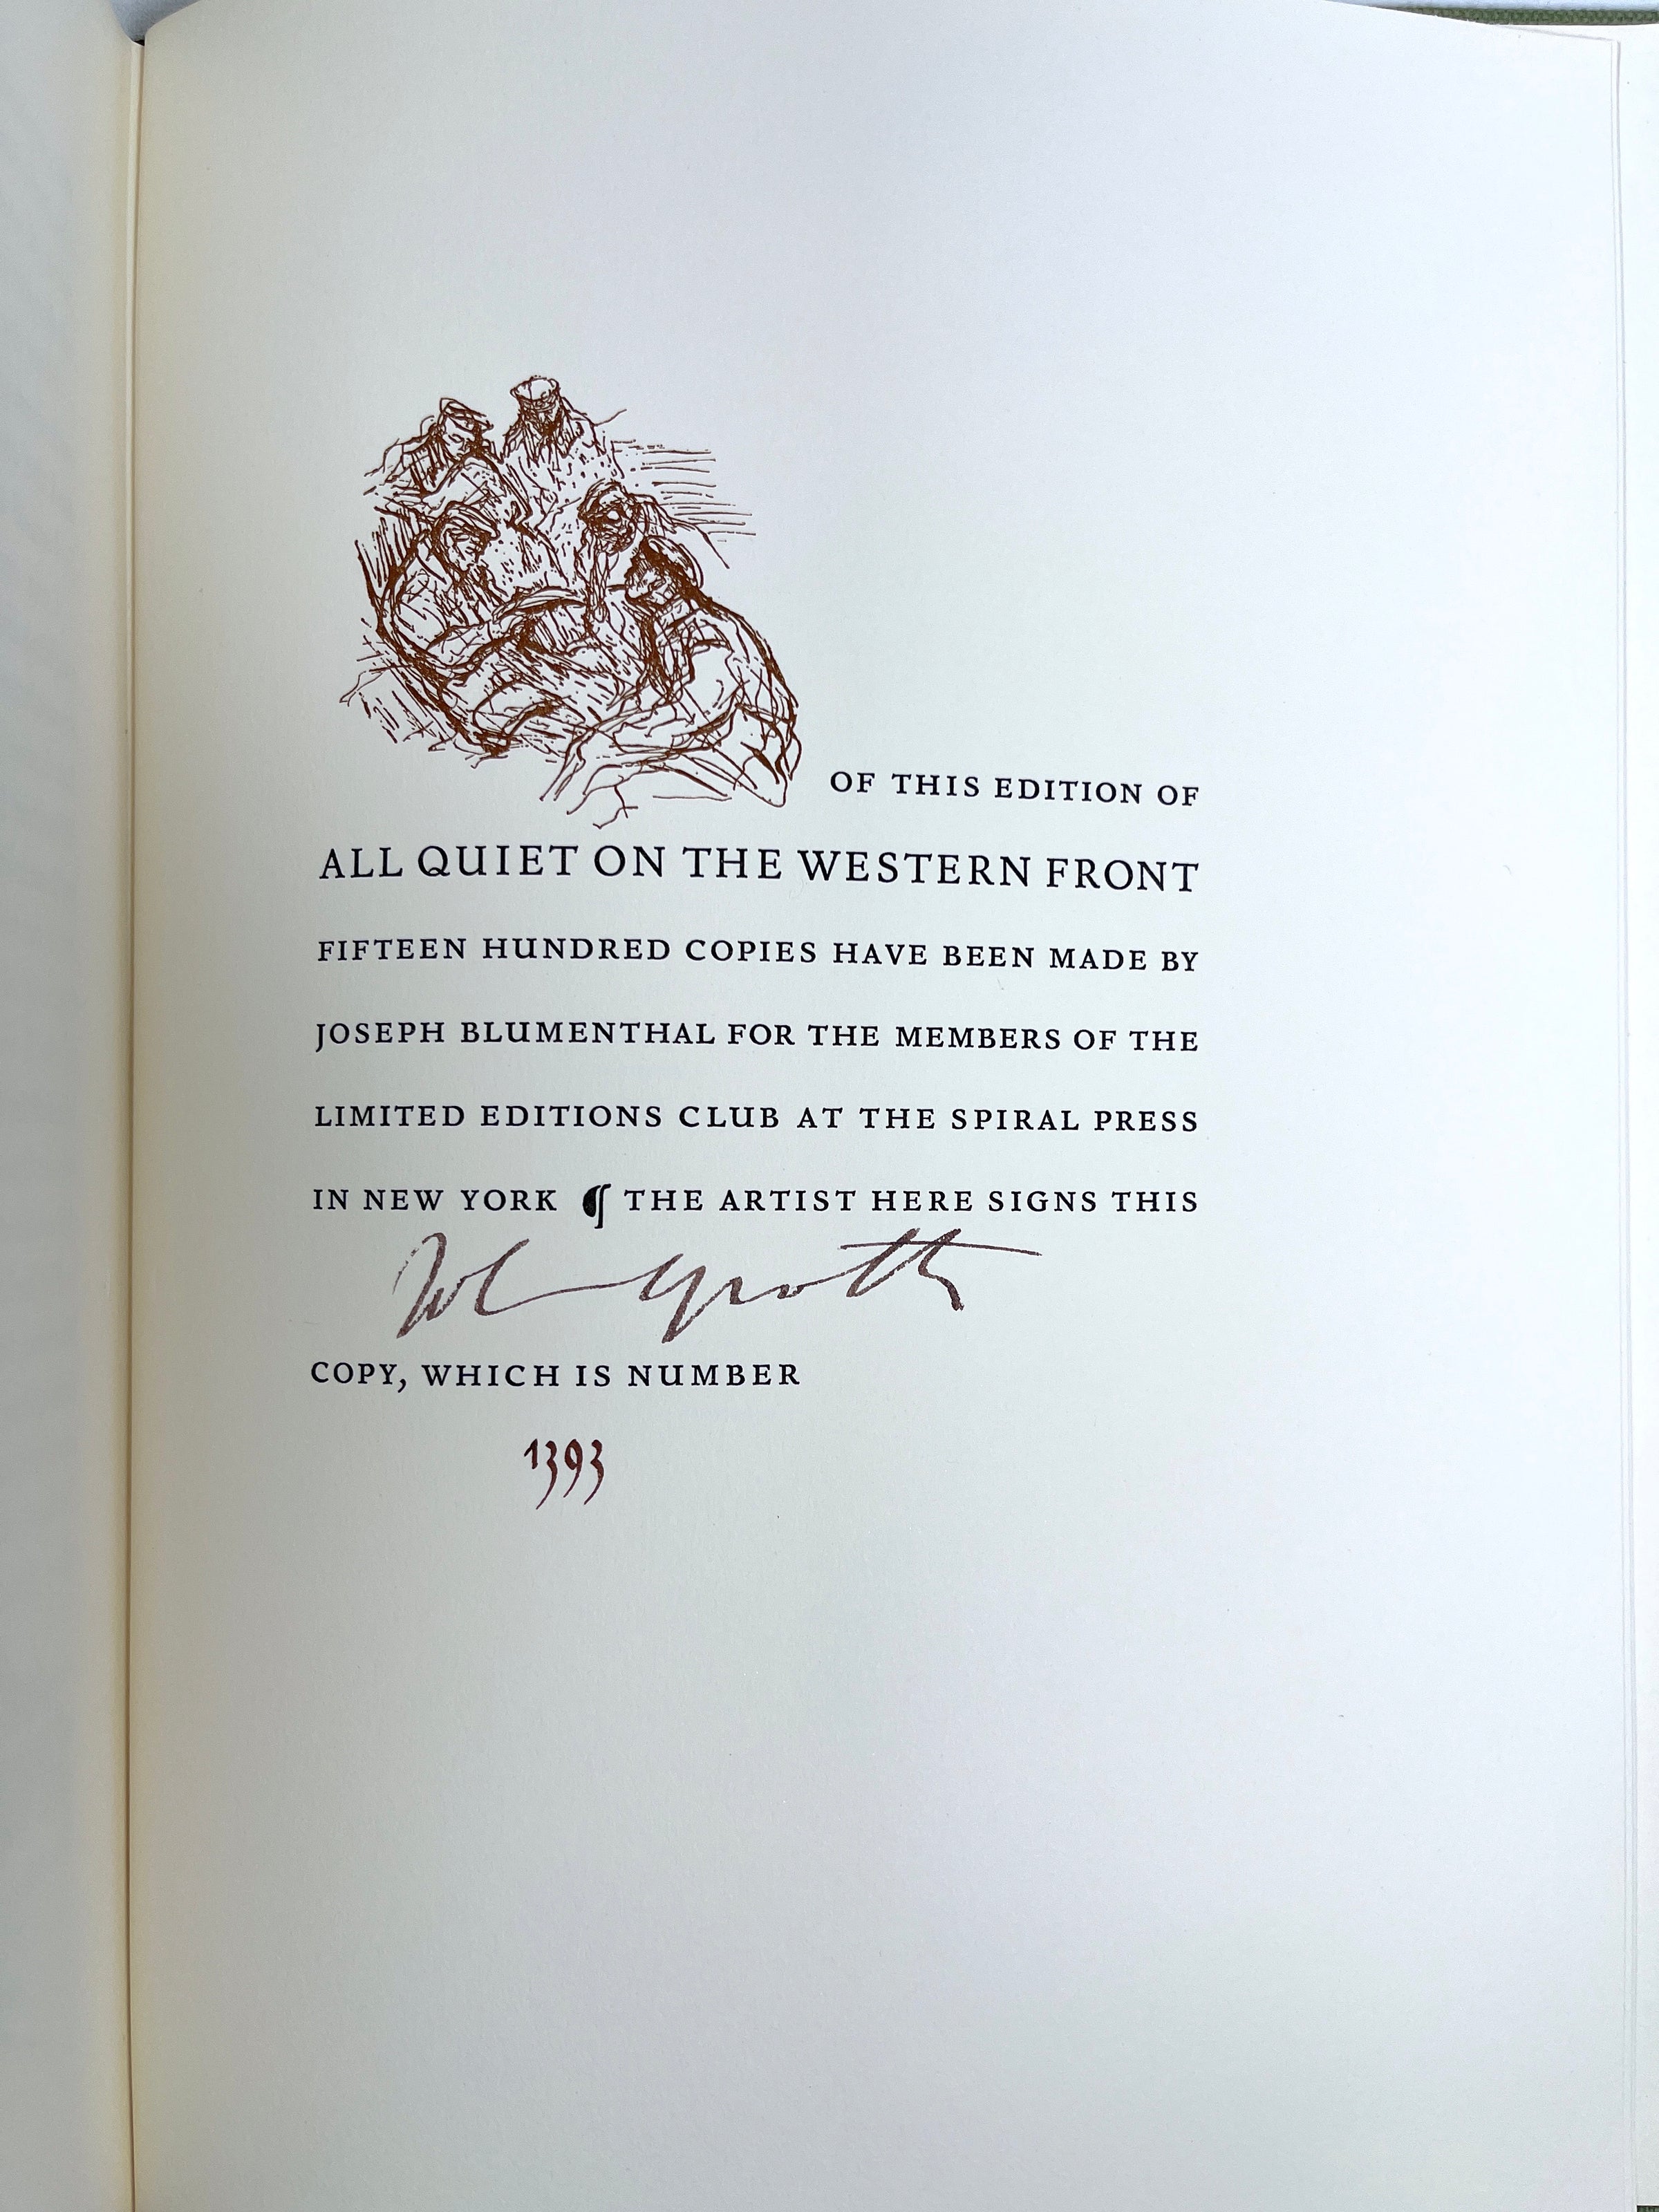 OF THIS EDITION OF
ALL QUIET ON THE WESTERN FRONT
FIFTEEN HUNDRED COPIES HAVE BEEN MADE BY
JOSEPH BLUMENTHAL FOR THE MEMBERS OF THE
LIMITED EDITIONS CLUB AT THE SPIRAL PRESS
IN NEW YORK ¶ THE ARTIST HERE SIGNS THIS
John Groth
COPY, WHICH IS NUMBER
1393